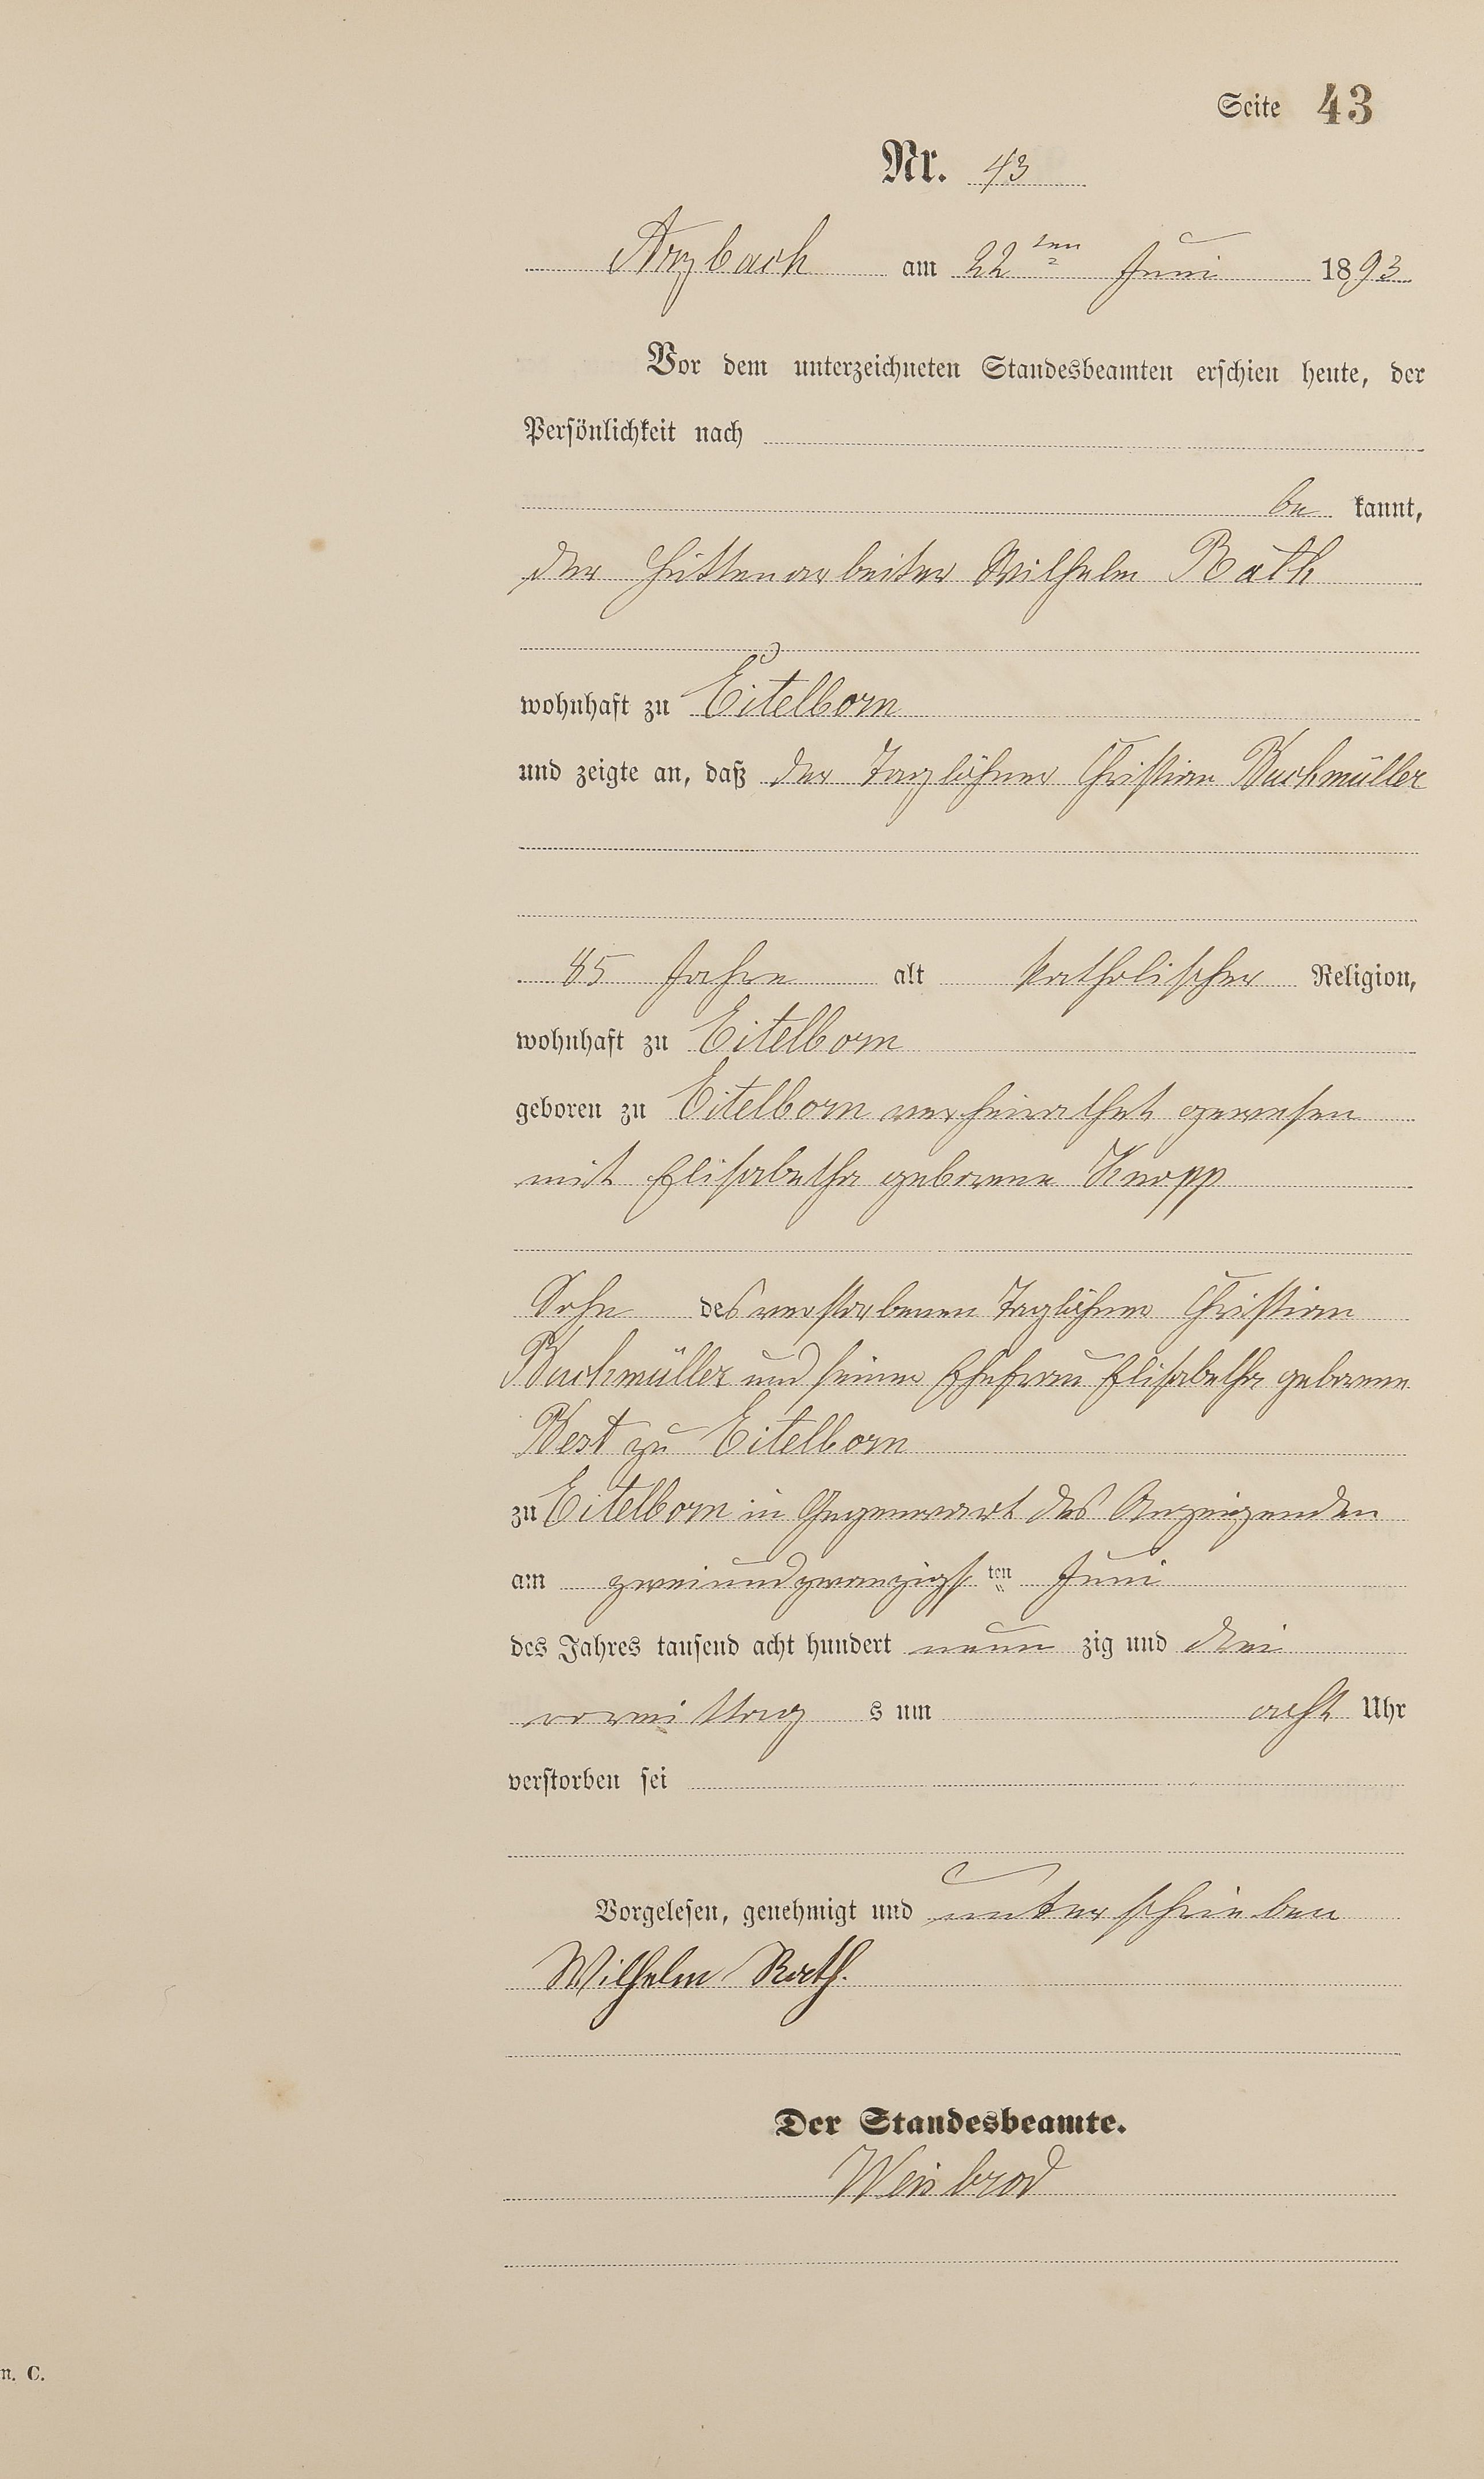 Seite 43
Nr. 43
Arzbach am 22ten Juni 1893
Vor dem unterzeichneten Standesbeamten erschien heute, der
Persönlichkeit nach
be kannt,
der Hüttenarbeiter Wilhelm Rath
wohnhaft zu Eitelborn
und zeigte an, daß der Taglöhner Christian Buchmüller
Jahre alt katholischer Religion,
wohnhaft zu Eitelborn
geboren zu Eitelborn verheirathet gewesen
mit Elisabetha geborene Knopp
Sohn des verstorbenen Taglöhner Christian
Buchmüller und seiner Ehefrau Elisabetha geborene
Best zu Eitelborn
zu Eitelborn in Gegenwart des Anzeigenden
am zweiundzwanzigsten Juni
des Jahres tausend acht hundert neun zig und drei
vormittag s um acht Uhr
verstorben sei
Vorgelesen, genehmigt und unterschrieben
Wilhelm Rath.
Der Standesbeamte.
Weisbrod
n. C.